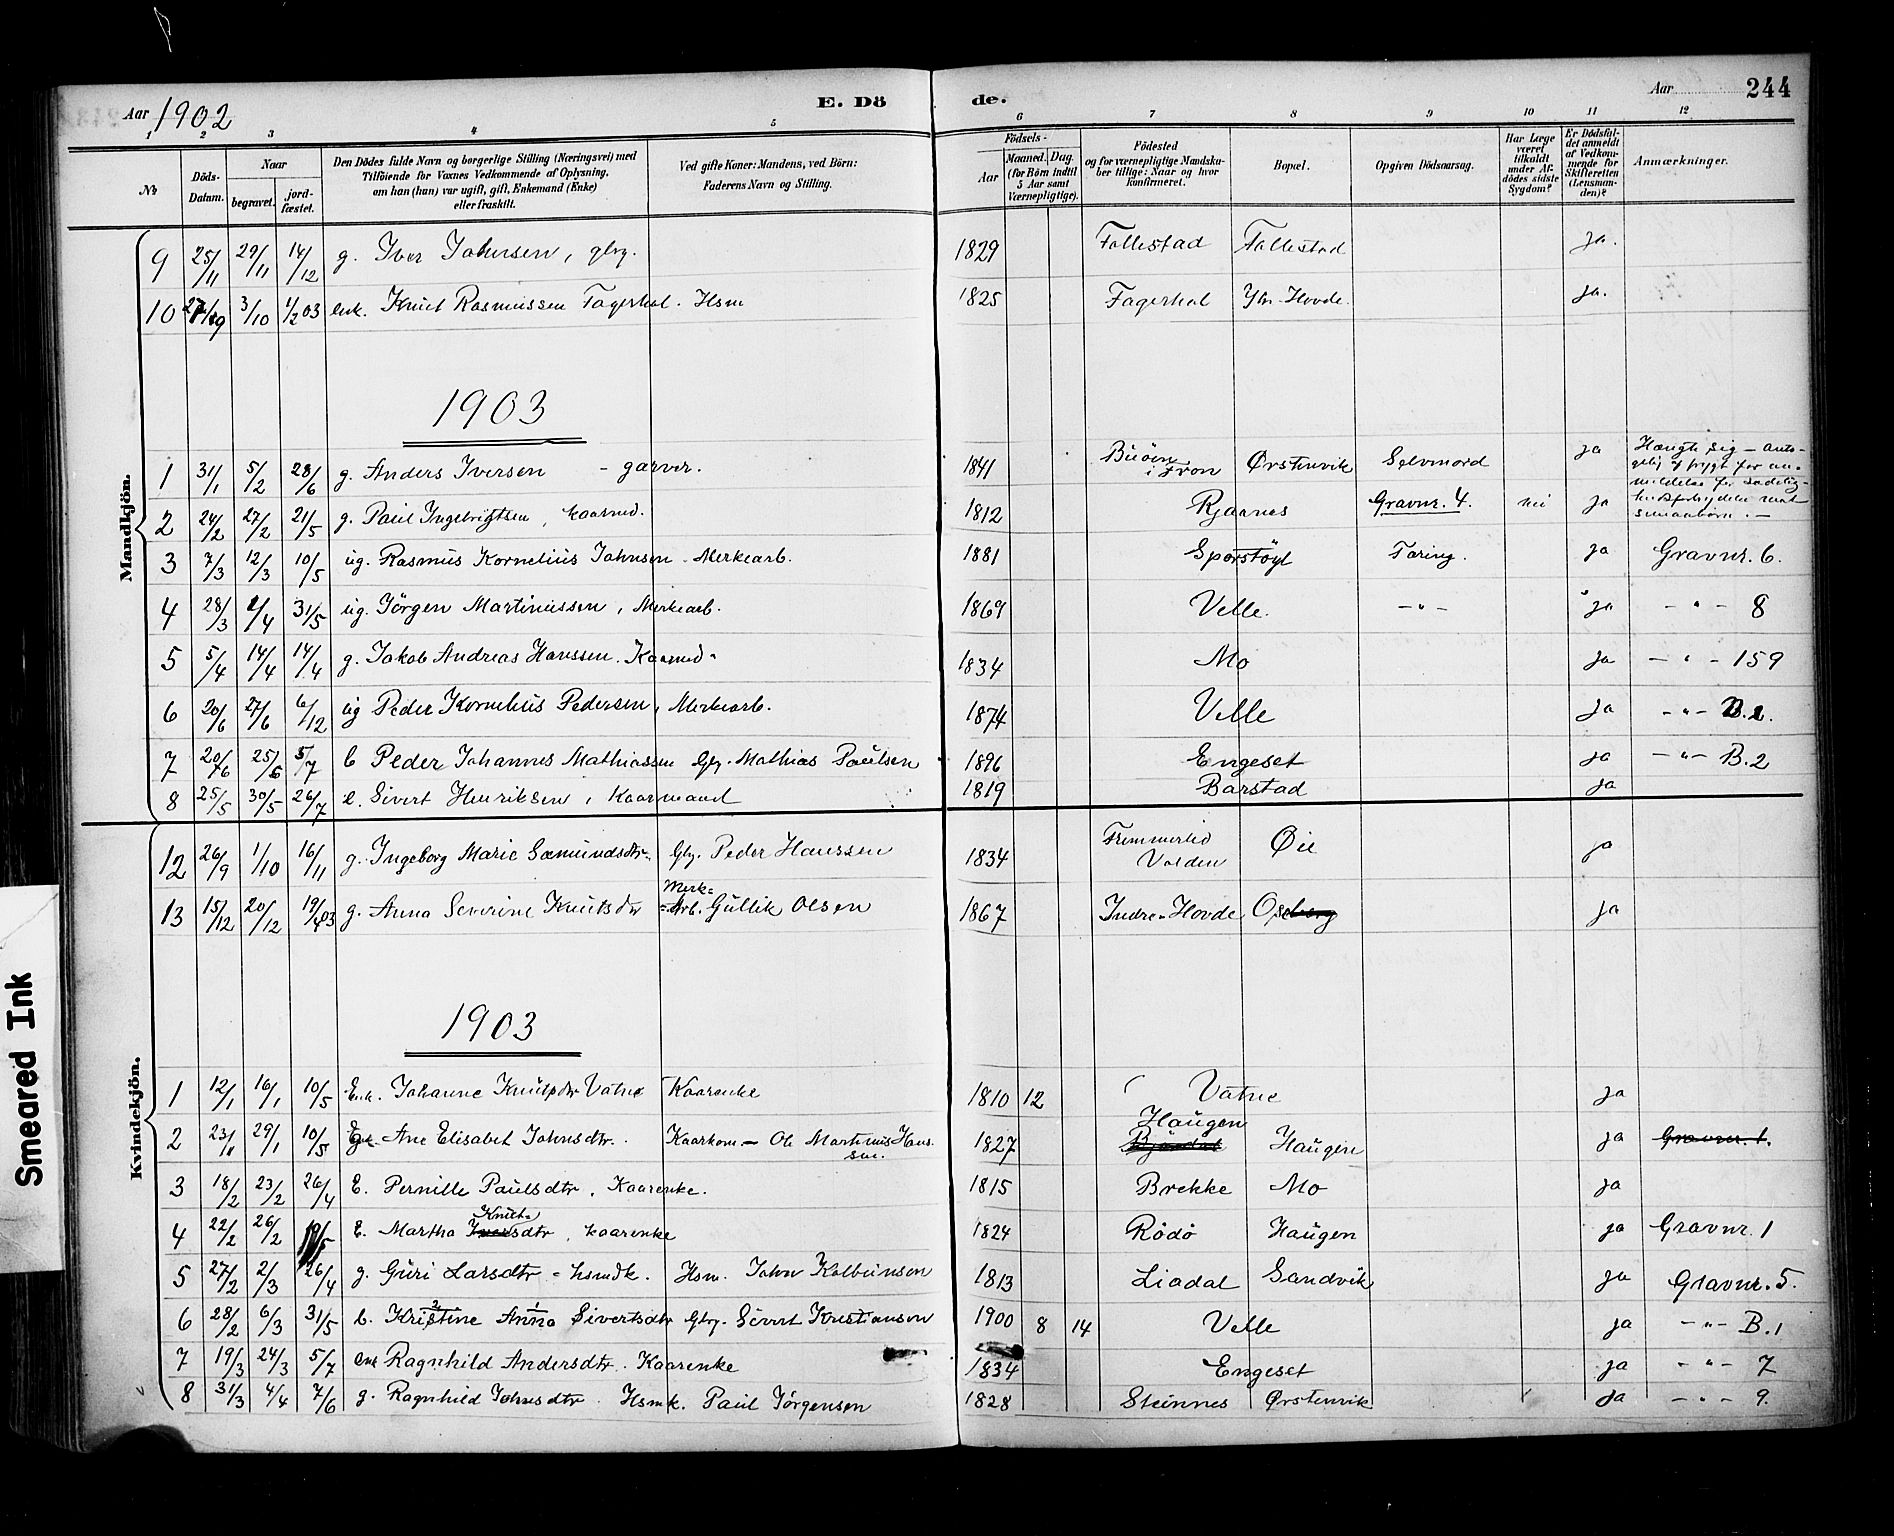 Aar 1902
E. Dö
de.
Aar
244
1 2 3 4 5 6 7 8 9 10 11 12
No
Döds-Datum.
Naar
begravet.
jord-fæstet.
Den Dödes fulde Navn og borgerlige Stilling (Næringsvei) med
Tilföiende for Voxnes Vedkommende af Oplysning,
om han (hun) var ugift, gift, Enkemand (Enke)
eller fraskilt.
Ved gifte Koner: Mandens, ved Börn:
Faderens Navn og Stilling.
Födsels-
Aar
Maaned. Dag.
(for Börn indtil
5 Aar samt
Værnepligtige).
Födested
og for værnepligtige Mandska-
ber tillige: Naar og hvor
konfirmeret.
Bopæl.
Opgiven Dödsaarsag.
Har Læge
været
tilkaldt
under Af-
dödes sidste
Sygdom?
Er Dödsfal-
det anmeldt
af Vedkom-
mende for
Skifteretten
(Lensman-
den)?
Anmærkninger.
Mandkjön.
9 25/11 29/11 14/12 g. Iver Johnsen, gbrg. 1829 Follestad Follestad ja.
10 3/10 1/2 03 enk. Knut Rasmussen Fagerhol. Hsm 1825 Fagerhol Ytr. Hovde. ja.
1903
1 31/1 5/2 28/6 g. Anders Iversen - garver. 1841 i Fron Ørstenvik Selvmord ja Hængte sig - anta-
gelig af frygt for an-
meldelse for sædelig-
hedsforbrydelse mod
smaabörn. -
2 24/2 27/2 21/5 g. Paul Ingebrigtsen, kaarmd. 1812 Rjaanes Gravnr. 4. nei ja
3 7/3 12/3 10/5 ug. Rasmus Kornelius Johnsen. Merkearb. 1881 Sporstöyl Tæring. ja Gravnr. 6.
4 28/3 1/4 31/5 ug. Jörgen Martinussen, Merkearb. 1869 Velle. - " - ja - " - 8
5 5/4 14/4 14/4 g. Jakob Andreas Hanssen. Kaarmd. 1834 Mo ja - " - 159
6 20/6 27/6 6/12 ug Peder Kornelius Pedersen, Merkearb. 1874 Velle ja - " -
7 20/6 25/6 5/7 b Peder Johannes Mathiassen Gbr. Mathias Paulsen 1896 Engeset ja - " - B.2
8 25/5 30/5 26/7 e. Sivert Henriksen, Kaarmand 1819 Barstad ja
Kvindekjön.
12 26/9 1/10 16/11 g. Ingeborg Marie Sæmundsdtr. Gbr. Peder Hanssen 1834 Volden Øie ja
13 15/12 20/12 19/4 03 g. Anna Severine Knutsdtr Merk=
=Arb. Gullik Olsen 1867 Indre-Hovde ja
1903
1 12/1 16/1 10/5 Enk. Johanne Knutsdtr Vatne Kaarenke 1810 12 Vatne ja
2 23/1 29/1 10/5 Ane Elisabet Johnsdtr. Kaarkone - Ole Martinus Hans-
sen. 1827 Haugen Haugen ja Gravnr. 1.
3 18/2 23/2 26/4 E. Pernille Paulsdtr, Kaarenke. 1815 Brekke Mo ja
4 22/2 26/2 10/5 E. Martha Knut-
sdtr, kaarenke 1824 Rödö Haugen ja Gravnr. 1
5 27/2 2/3 26/4 g. Guri Larsdtr - hsmdk. Hsm. John Kolbeinsen 1813 Liadal Sandvik ja Gravnr. 5.
6 28/2 6/3 31/5 b. Kristine Anna Sivertsdtr Gbr. Sivert Kristiansen 1900 8 14 Velle ja - " - B.1
7 19/3 24/3 5/7 enk Ragnhild Andersdtr. Kaarenke 1834 Engeset ja - " - 7
8 31/3 4/4 7/6 g. Ragnhild Johnsdtr. Hsmk. Paul Jörgensen 1828 Steinnes Ørstenvik ja - " - 9.
Smeared Ink